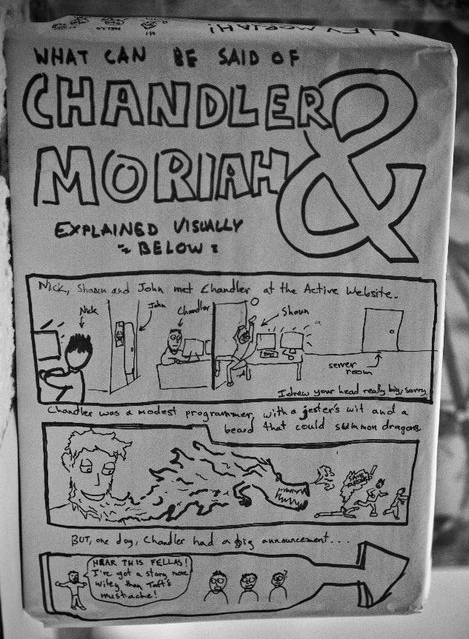 HEY MORIAH!
WHAT CAN BE SAID OF
CHANDLER &
MORIAH
EXPLAINED VISUALLY
BELOW:
Nick, Shaun and John met Chandler at the Active Website.
Nick
John
Chandler
Shaun
server
room
I drew your head really big, sorry
Chandler was a modest programmer, with a jester's wit and a
beard that could summon dragons
BUT, one day, Chandler had a big announcement...
HEAR THIS FELLAS!
I've got a story more
wiley than Taft's
mustache!